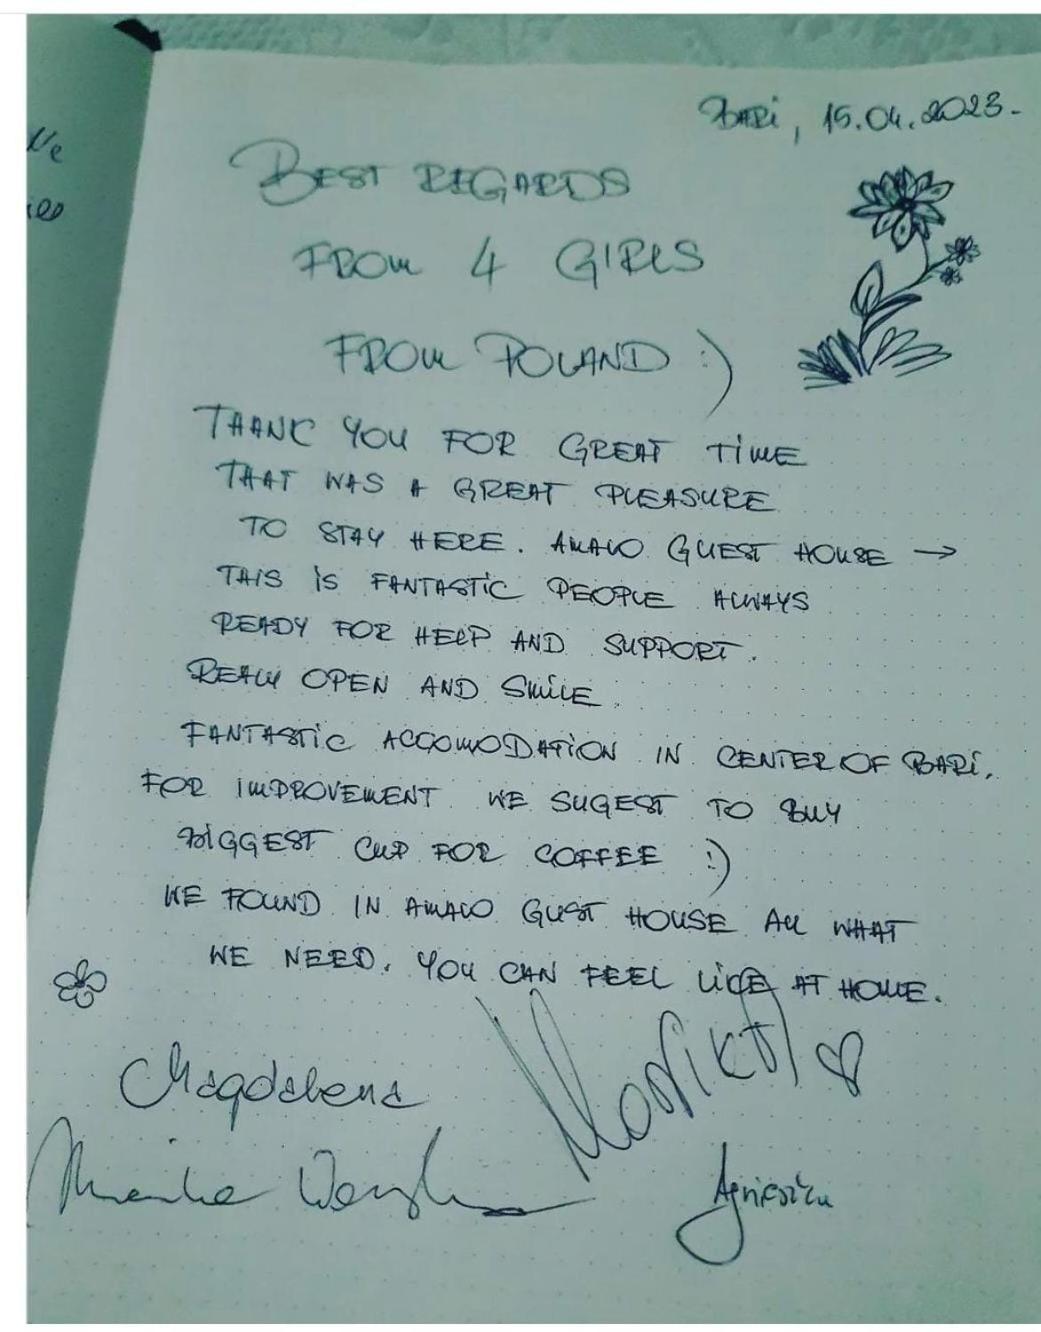 BARI, 15.04.2023.
BEST REGARDS
FROM 4 GIRLS
FROM POLAND :)
THANK YOU FOR GREAT TIME
THAT WAS A GREAT PLEASURE
TO STAY HERE. AMALO GUEST HOUSE →
THIS IS FANTASTIC PEOPLE ALWAYS
READY FOR HELP AND SUPPORT.
REALLY OPEN AND SMILE.
FANTASTIC ACCOMODATION IN CENTER OF BARI.
FOR IMPROVEMENT WE SUGEST TO BUY
BIGGEST CUP FOR COFFEE :)
WE FOUND IN AMALO GUST HOUSE ALL WHAT
WE NEED. YOU CAN FEEL LIKE AT HOME.
Magdalena
Agnieszka